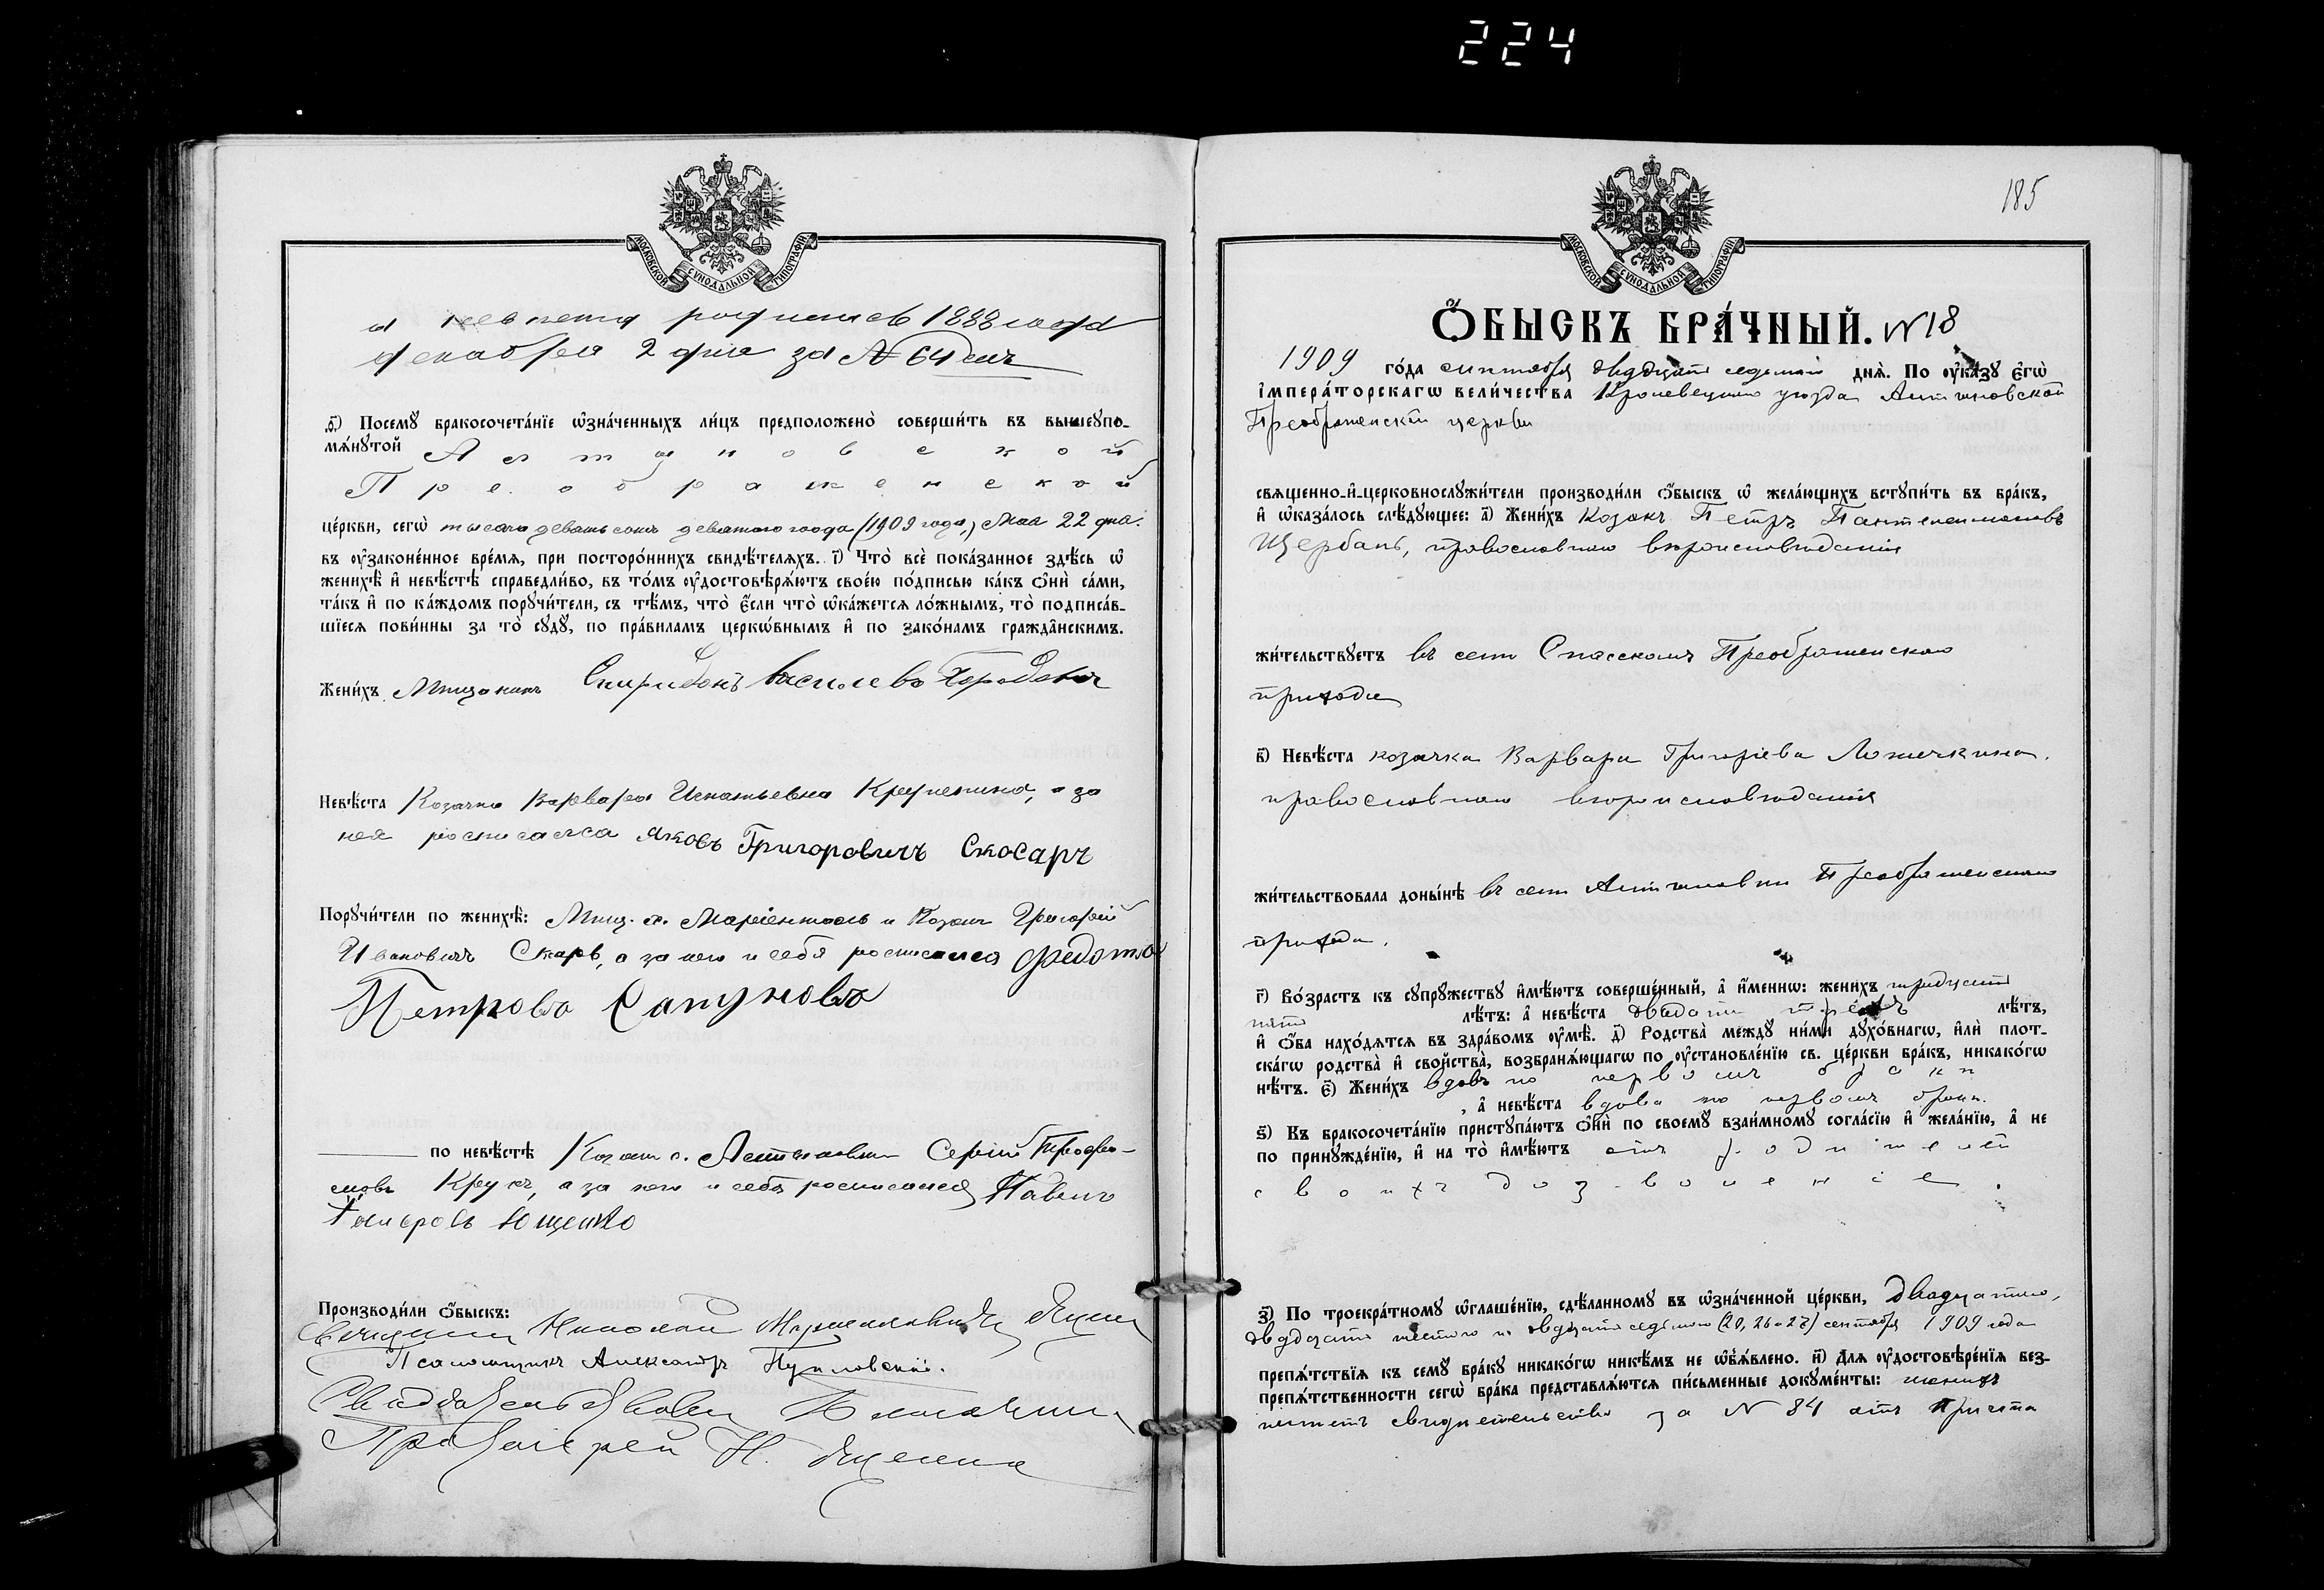 224
МОСКОВСКОЙ СУНОДАЛЬНОЙ ТИПОГРАФІИ
а невѣста родилась 1888 года
декабря 2 дня за № 64
ѳ҃) Посемꙋ̀ бракосочета́нїе ѡ҆зна́ченныхъ ли́цъ предположено̀ соверши́ть въ вышеꙋпо-
мѧ́нꙋтой Антоновской
Преображенской
це́ркви, сегѡ̀ тысяча девятьсотъ девятого года (1909 года) Мая 22 дня.
въ ᲂу҆законе́нное вре́мѧ, при посторо́ннихъ свидѣ́телѧхъ. і҃) Что̀ всѐ пока́занное здѣ́сь ѡ҆
женихѣ̀ и҆ невѣ́стѣ справедли́во, въ то́мъ ᲂу҆достовѣрѧ́ютъ свое́ю по́дписью ка́къ ѻ҆нѝ са́ми,
та́къ и҆ по ка́ждомъ порꙋчи́тели, съ тѣ́мъ, что̀ є҆́сли что̀ ѡ҆ка́жетсѧ ло́жнымъ, то̀ подписа́в-
шїесѧ пови́нны за то̀ сꙋдꙋ̀, по пра́виламъ церкѡ́внымъ и҆ по зако́намъ гражда̑нскимъ.
Жени́хъ Мѣщанинъ Спиридонъ Васильевъ
Невѣ́ста Козачка Варвара Игнатьевна а за
нея росписался Яковъ Григоровичъ Скосарь
Порꙋчи́тели по женихѣ̀: и Козакъ Григорій
Ивановичъ а за него и себя росписался Федотъ
Петровъ Сапуновъ
по невѣ́стѣ Козакъ с. Сергій Трофи-
мовъ Крукъ, а за него и себя росписался Павелъ
Ющенко
Производи́ли ѻ҆́быскъ:
Священникъ Николай
Псаломщикъ Александръ
Протоіерей Н.
185
МОСКОВСКОЙ СУНОДАЛЬНОЙ ТИПОГРАФІИ
Ѻ҆́БЫСКЪ БРА́ЧНЫЙ. № 18
1909 го́да сентября двадцать седьмого днѧ̀. По ᲂу҆ка́зꙋ Є҆гѡ̀
І҆мпера́торскагѡ вели́чества Кролевецкаго уѣзда Антоновской
Преображенской церкви
свѧще́нно-и҆-церковнослꙋжи́тели производи́ли ѻ҆́быскъ ѡ҆ жела́ющихъ встꙋпи́ть въ бра́къ,
и҆ ѡ҆каза́лось слѣ́дꙋющее: а҃) Жени́хъ Козакъ Петръ Пантелеимоновъ
Щербань, православнаго вѣроисповѣданія
жи́тельствꙋетъ въ селѣ Спасскомъ Преображенскаго
прихода
в҃) Невѣ́ста козачка Варвара Григорьева Ложечкина.
православнаго вѣроисповѣданія
жи́тельствовала доны́нѣ въ селѣ Антоновкѣ Преображенскаго
прихода.
г҃) Во́зрастъ къ сꙋпрꙋ́жествꙋ и҆мѣ́ютъ соверше́нный, а҆ и҆́меннѡ: жени́хъ тридцати
пяти лѣ́тъ: а҆ невѣ́ста двадцати трехъ лѣ́тъ,
и҆ ѻ҆́ба нахо́дѧтсѧ въ здра́вомъ ᲂу҆мѣ̀. д҃) Родства̀ междꙋ̀ ни́ми дꙋхо́внагѡ, и҆лѝ плот-
ска́гѡ родства̀ и҆ свойства̀, возбранѧ́ющагѡ по ᲂу҆становле́нїю св. це́ркви бра́къ, никако́гѡ
нѣ́тъ. є҃) Жени́хъ вдовъ по первомъ бракѣ
, а҆ невѣ́ста вдова по первомъ бракѣ.
ѕ҃) Къ бракосочета́нїю пристꙋпа́ютъ ѻ҆нѝ по своемꙋ̀ взаи́мномꙋ согла́сїю и҆ жела́нїю, а҆ не
по принꙋжде́нїю, и҆ на то̀ и҆мѣ́ютъ отъ родителей
своихъ дозволеніе.
з҃) По троекра́тномꙋ ѡ҆глаше́нїю, сдѣ́ланномꙋ въ ѡ҆зна́ченной це́ркви, двадцатого,
двадцать шестого и двадцать седьмого (20, 26 и 27) сентября 1909 года
препѧ́тствїѧ къ семꙋ̀ бра́кꙋ никако́гѡ никѣ́мъ не ѡ҆б̾ѧ́влено. и҃) Длѧ ᲂу҆достовѣре́нїѧ без-
препѧ́тственности сегѡ̀ бра́ка представлѧ́ютсѧ пи́сьменные докꙋме́нты: женихъ
имѣетъ свидѣтельство за № 84 отъ причта